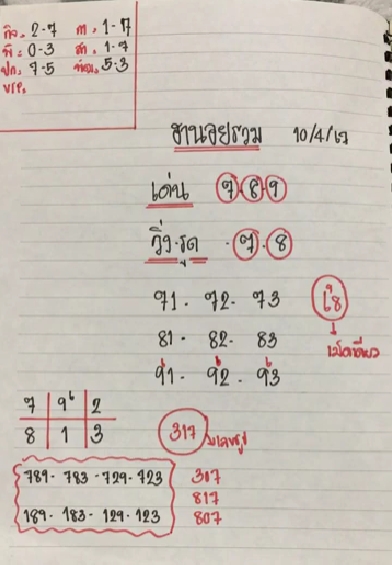 กิจ. 2-7 ท. 1-7
พิ. 0-3 ส. 1-7
ปก. 7-5 5-3
ฮานอยรวม 10/4/67
เด่น 7 8 9
วิ่ง.รูด 7.8
71. 72. 73
81. 82. 83
91. 92. 93
เม็ดเดียว
7 9 2
8 1 3
317
789. 783 - 729. 723 307
817
189. 183. 129. 123 807